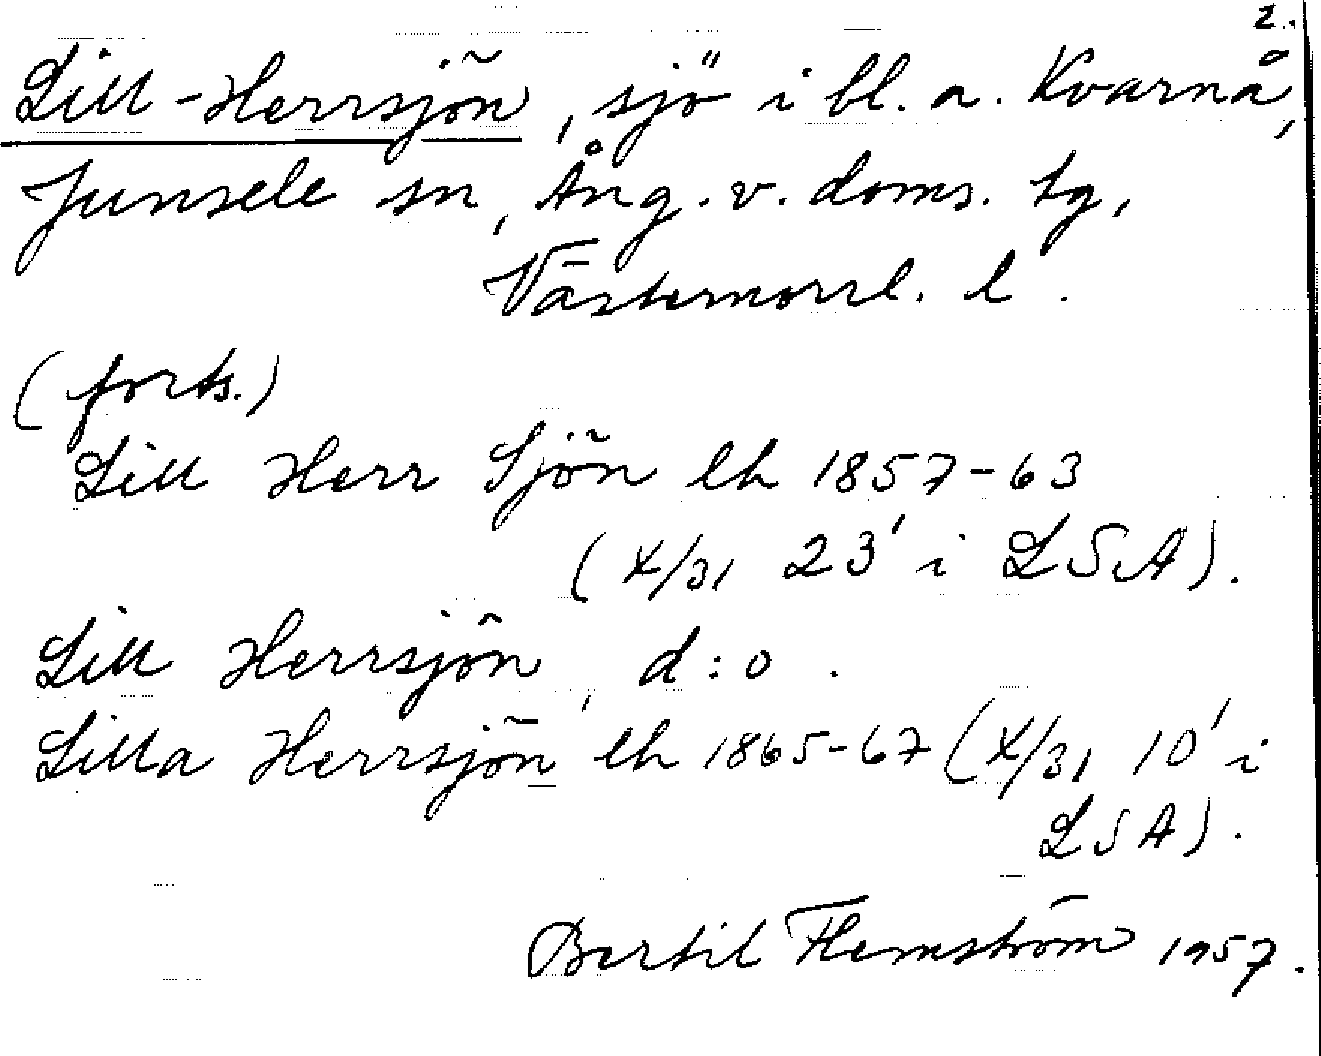 2.
Lill-Herrsjön, sjö i bl. a. Kvarnå,
Junsele sn, Ång. v. doms. tg,
Västernorrl. l.
(forts.)
Lill Herr Sjön lh 1857-63
(X/31 23' i LSA).
Lill Herrsjön, d:o.
Lilla Herrsjön lh 1865-67 (X/31 10' i
LSA).
Bertil Flemström 1957.